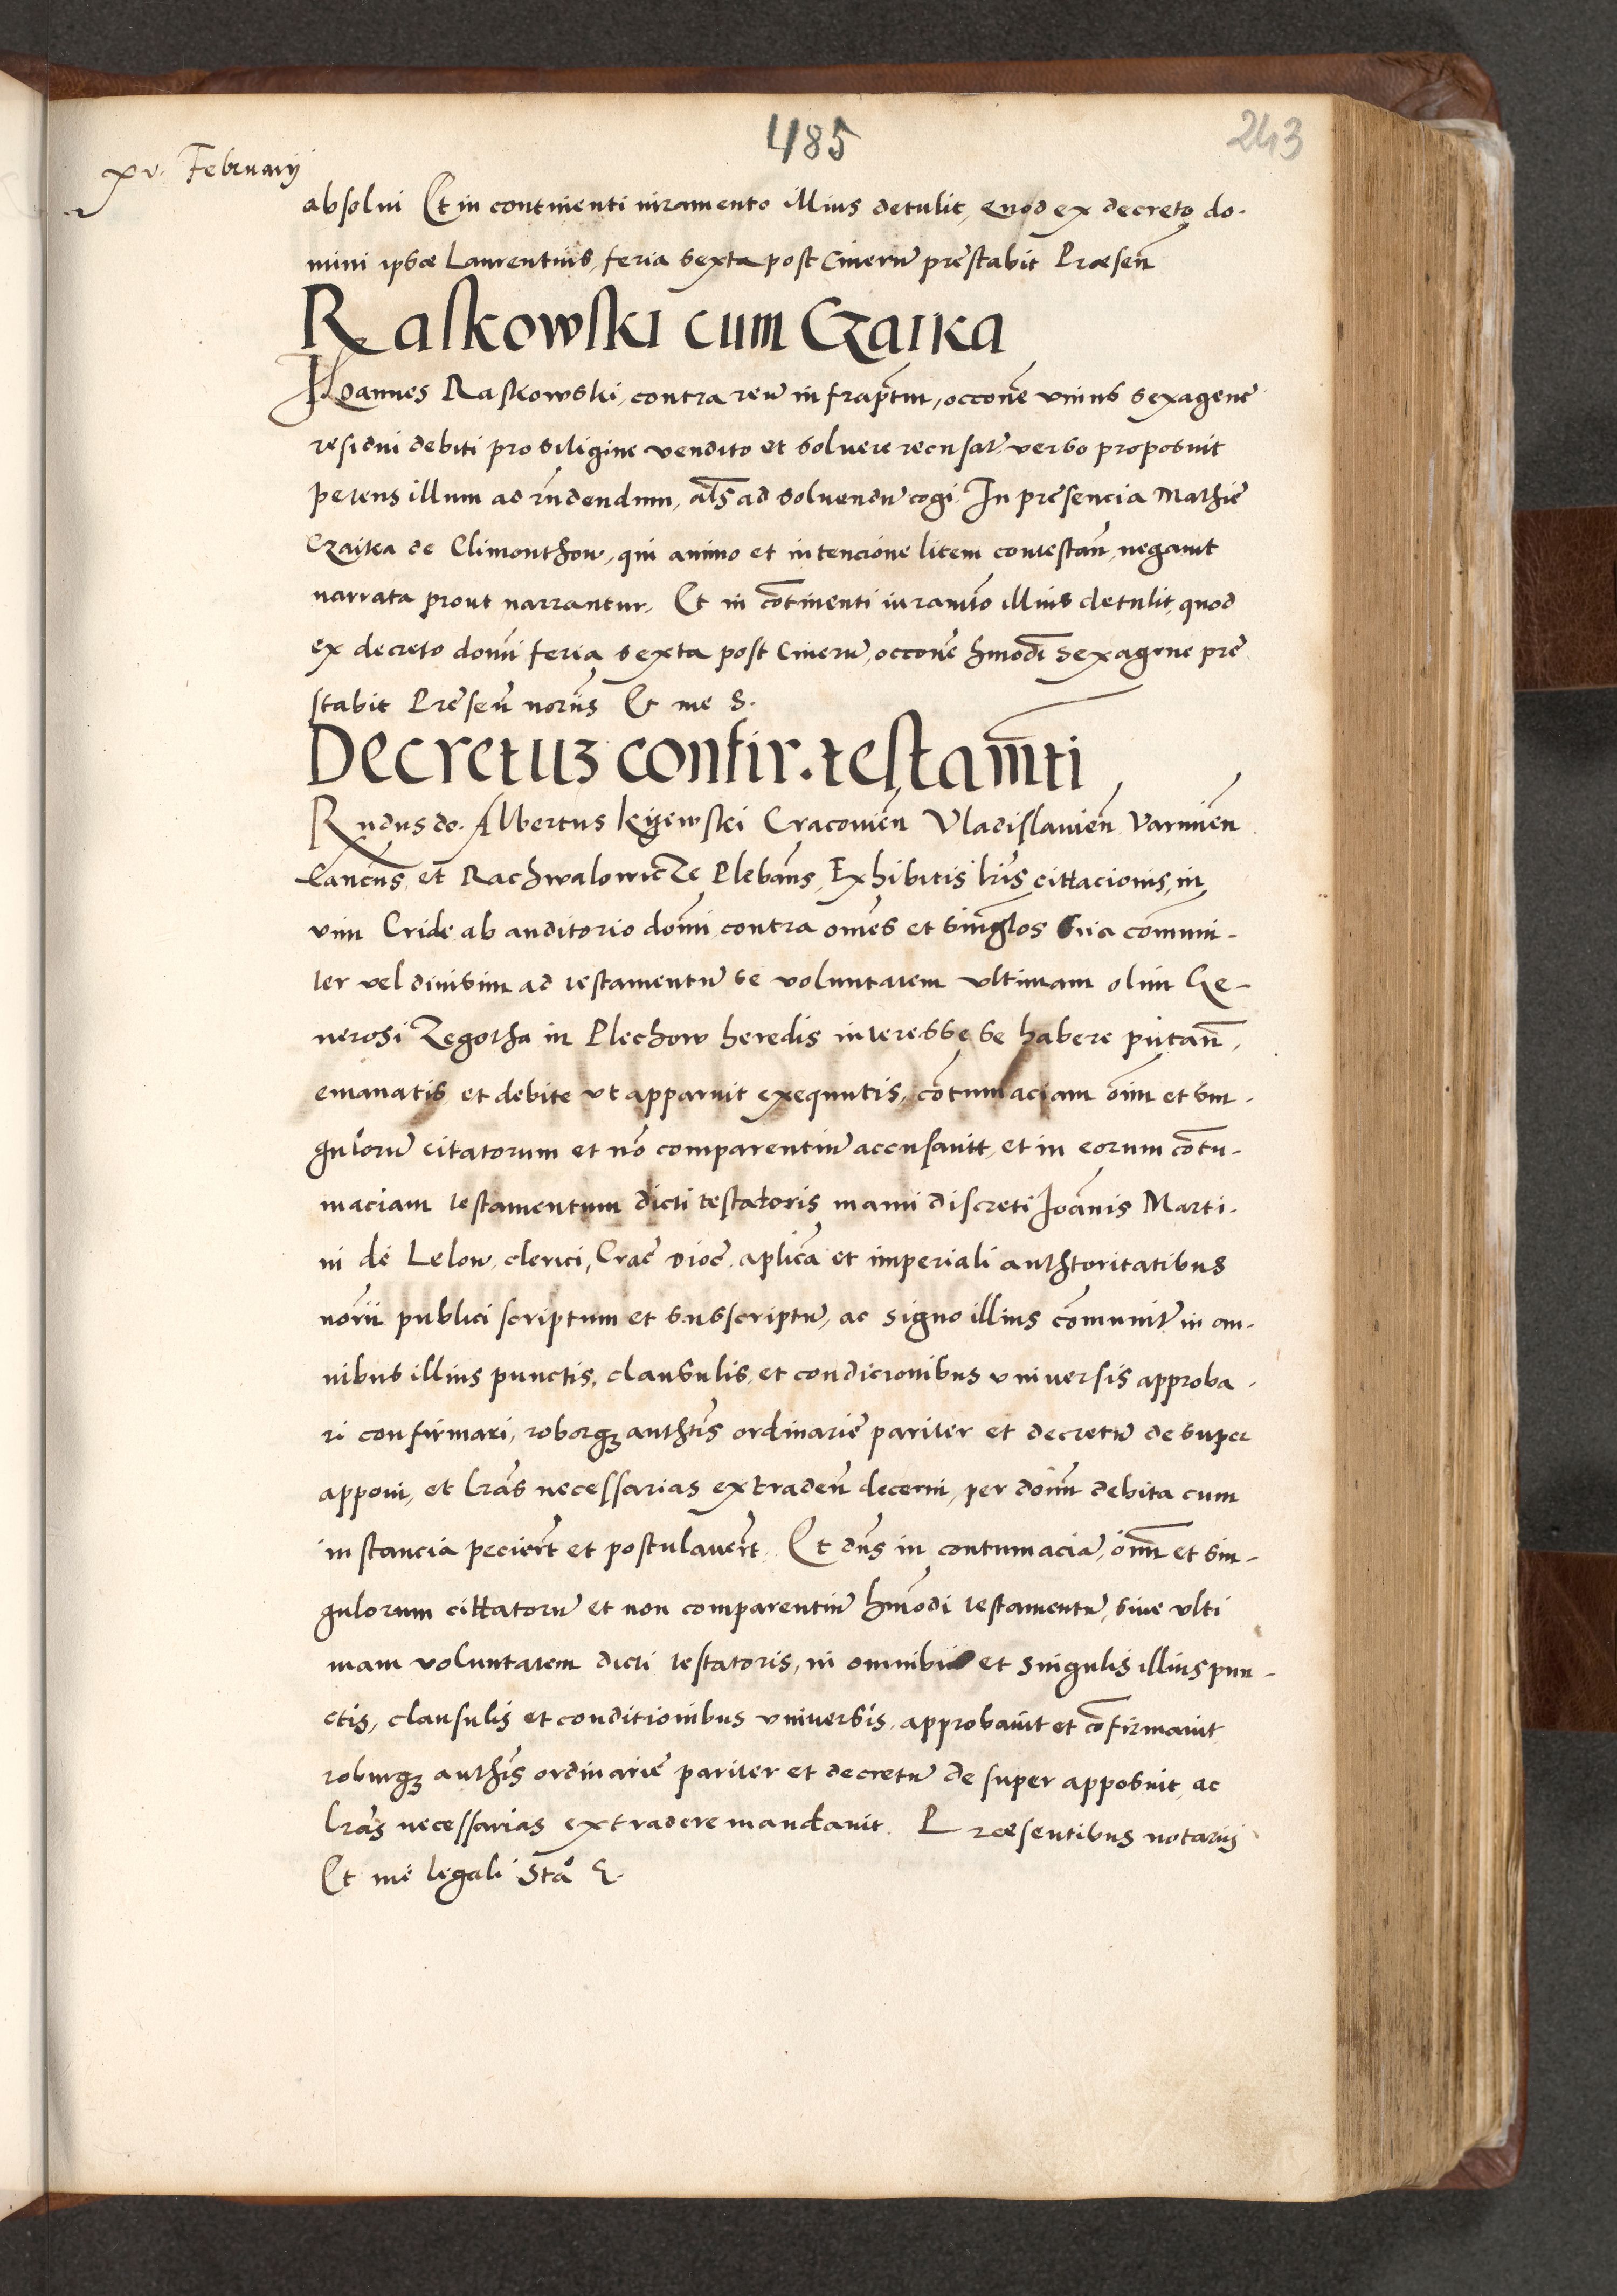 485
243
xv. Februarij
absolui Et in continenti iuramento illius detulit, quod ex decreto do-
mini ipse Laurentius, feria sexta post Cinerū prestabit Præsen̄
Raskowski cum Czaika
Ioannes Raskowski, contra reū infrap̄tm̄, occōne vnius sexagene
residui debiti pro siligine vendito et soluere recusat̄ verbo proposuit
petens illum ad rn̄dendum, al̄s ad soluendū cogi. In presencia Mathie
Czaika de Climonthow, qui animo et intencione litem contestan̄ negauit
narrata prout narrantur, Et in cōtinenti iuramēto illius detulit, quod
ex decreto domī feria sexta post Cinerū, occōne hmōdi sexagene pre
stabit Presen̄ noriīs Et me S.
Decretuʒ confir. testam̄ti
Rndus do. Albertus kyewski Cracovien̄ Vladislauien̄ Varmien̄
Canc̄us et Rachwalowicze Pleban̄s, Exhibitis lr̄is cittacionis, in
vim Cride ab auditorio domī contra om̄es et singl̄os sua cōmuni-
ter vel diuisim ad testamentū se voluntatem vltimam olim Ge-
nerosi Zegotha in Plechow heredis interesse se habere putan̄,
emanatis et debite vt apparuit exequutis, cōtumaciam om̄i et sin-
gulorū citatorum et nō comparentiū accusauit, et in eorum cōtu-
maciam testamentum dicti testatoris manu discreti Ioānis Marti-
ni de Lelow, clerici, Crac̄ dioc̄ aplīca et imperiali authtoritatibus
norii publici scriptum et subscriptū, ac signo illius cōmunit̄ in om-
nibus illius punctis, clausulis, et condicionibus vniuersis approba-
ri confirmari, roborqʒ auth̄tis ordinarie pariter et decretū desuper
apponi, et lr̄as necessarias extraden̄ decerni, per dom̄ debita cum
instancia pecier̄t et postulauer̄t. Et dn̄s in contumaciā, om̄i et sin-
gulorum cittatorū et non comparentiū hmōdi testamentū, siue vlti
mam voluntatem dicti testatoris, in omnibus et singulis illius pun-
ctis, clausulis et conditionibus vniuersis, approbauit et cōfirmauit
roburqʒ auth̄tis ordinarie pariter et decretū desuper apposuit, ac
lr̄as necessarias extradere mandauit. Præsentibus notarijs
Et me legali Sta͞